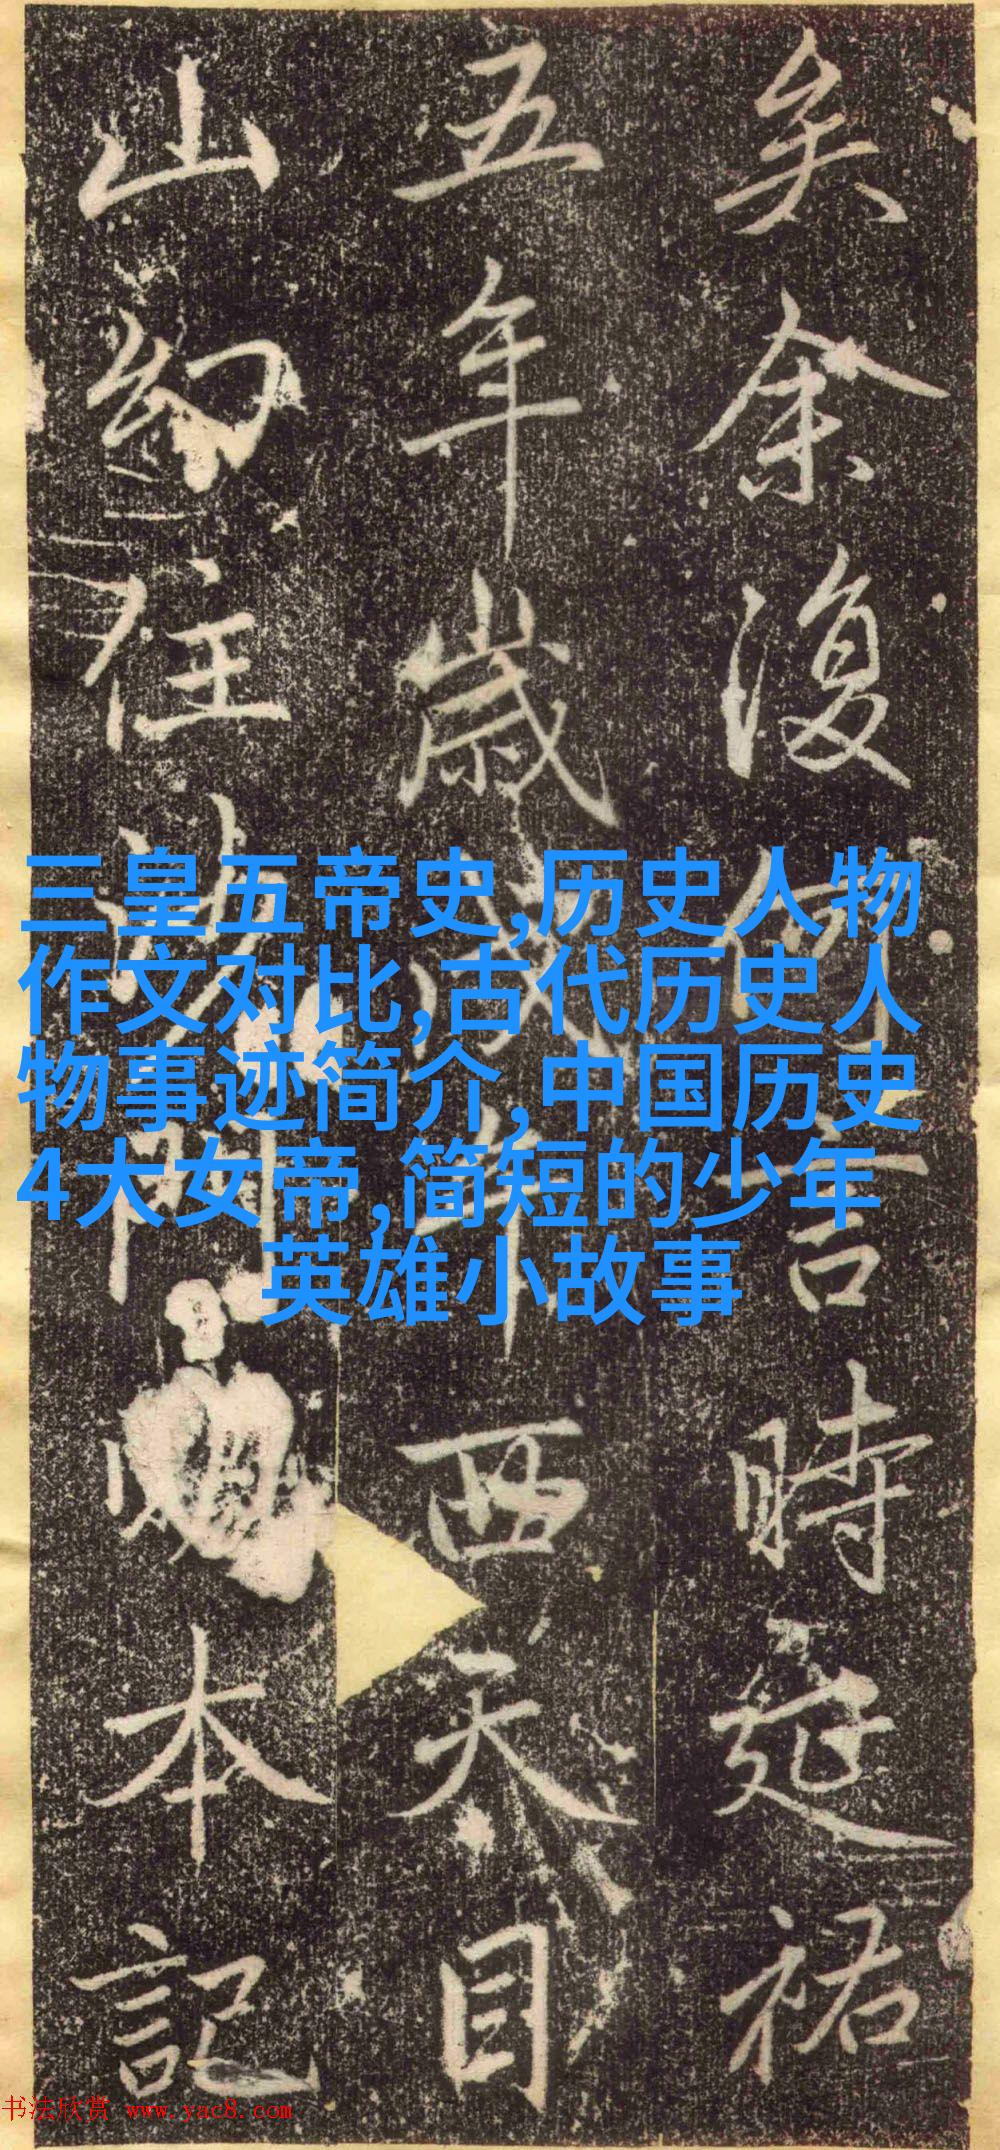 矣余復何言時延祐
五年歲戊午西天目
山幻住沙門明本記
三皇五帝史,历史人物
作文对比,古代历史人
物事迹简介,中国历史
4大女帝,简短的少年
英雄小故事
书法欣赏 www.yac8.com